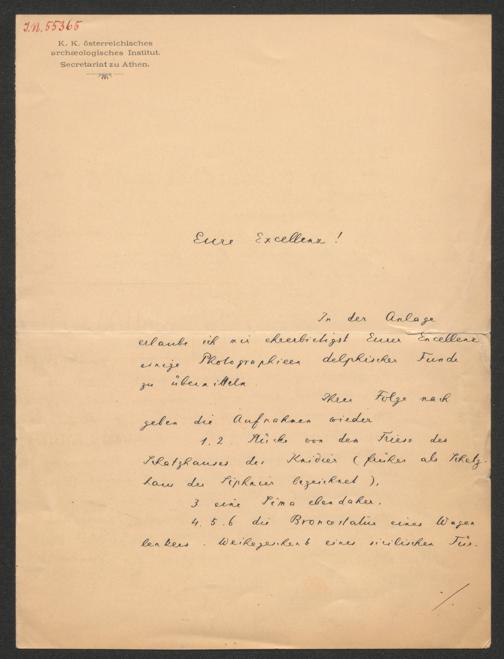 I.N. 55365
K. K. österreichisches
archæologisches Institut.
Secretariat zu Athen.
Eure Excellenz!
In der Anlage
erlaube ich mir ehrerbietigst Eurer Excellenz
einige Photographieen delphischer Funde
zu übermitteln.
Ihrer Folge nach
geben die Aufnahmen wieder
1. 2. Stücke von dem Friese des
Schatzhauses der Knidier (früher als Schatz-
haus der Siphnier bezeichnet),
3 eine Sima ebendaher.
4. 5. 6 die Broncestatue eines Wagen
lenkers. Weihegeschenk eines sicilischen Für-
./.